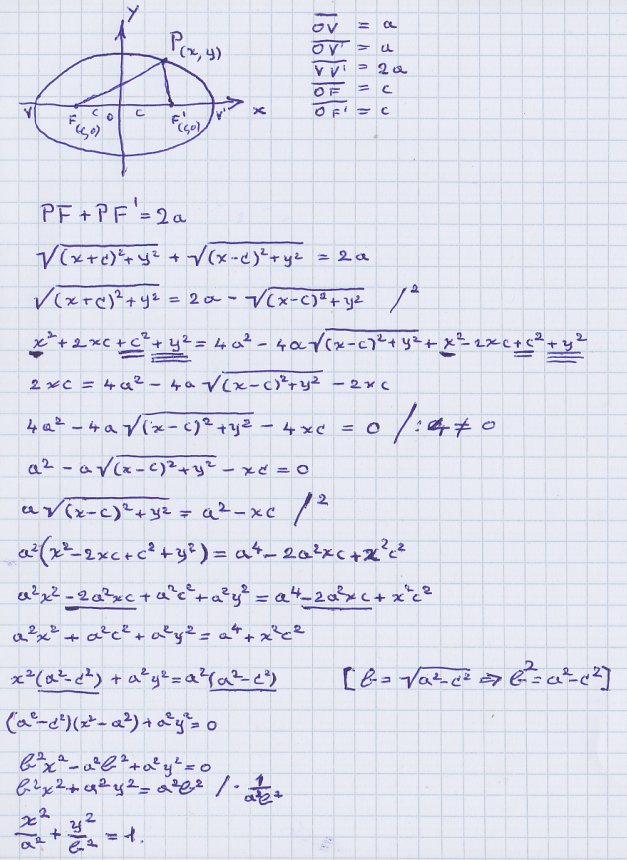 y
P(x, y)
V F C O C F' V' x
(c,0) (c,0)
OV = a
OV' = a
VV' = 2a
OF = c
OF' = c
PF + PF' = 2a
√(x+c)²+y² + √(x-c)²+y² = 2a
√(x+c)²+y² = 2a - √(x-c)²+y² /²
x² + 2xc + c² + y² = 4a² - 4a√(x-c)²+y² + x² - 2xc + c² + y²
2xc = 4a² - 4a√(x-c)²+y² - 2xc
4a² - 4a√(x-c)²+y² - 4xc = 0 /:4≠0
a² - a√(x-c)²+y² - xc = 0
a√(x-c)²+y² = a² - xc /²
a²(x² - 2xc + c² + y²) = a⁴ - 2a²xc + x²c²
a²x² - 2a²xc + a²c² + a²y² = a⁴ - 2a²xc + x²c²
a²x² + a²c² + a²y² = a⁴ + x²c²
x²(a²-c²) + a²y² = a²(a²-c²) [b = √a²-c² ⇒ b² = a²-c²]
(a²-c²)(x²-a²) + a²y² = 0
b²x² - a²b² + a²y² = 0
b²x² + a²y² = a²b² / · 1/a²b²
x²/a² + y²/b² = 1.